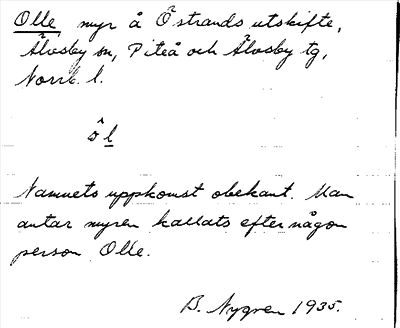 Olle myr å Östrands utskifte,
Älvsby sn, Piteå och Älvsby tg,
Norrb. l.
ȯ̂l
Namnets uppkomst obekant. Man
antar myren kallats efter någon
person Olle.
B. Nygren 1935.